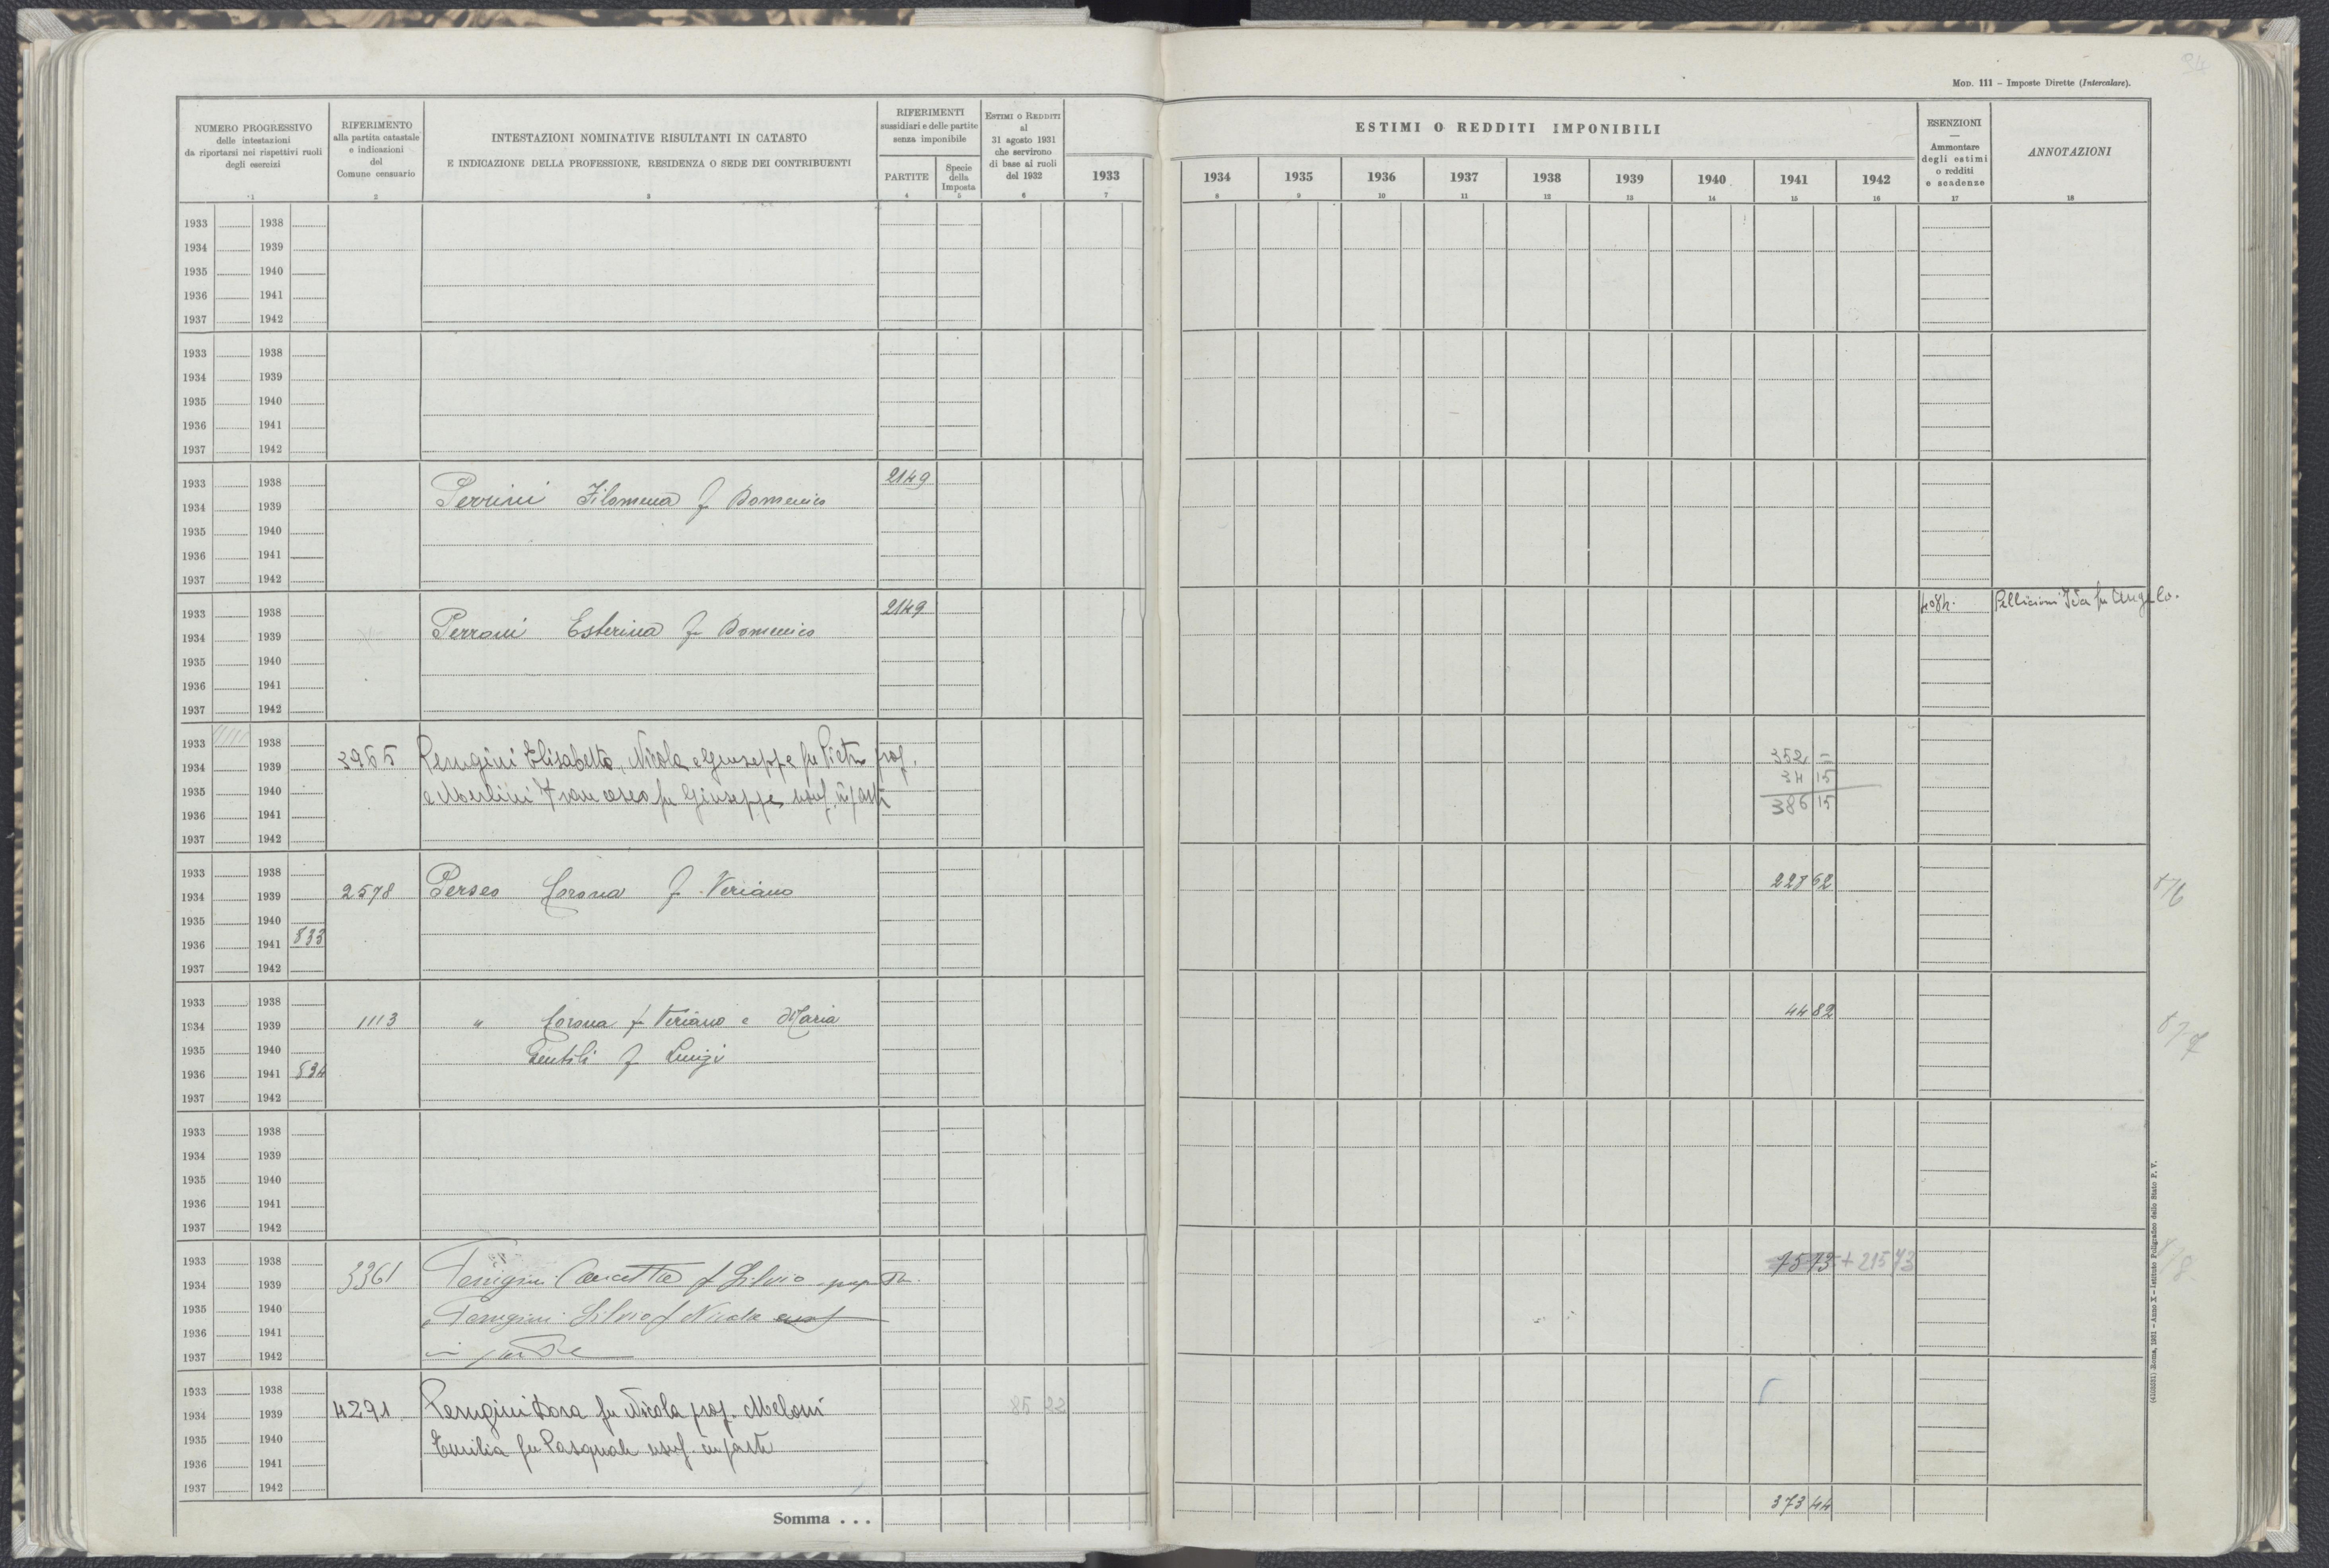 94
MOD. 111 – Imposte Dirette (Intercalare).
NUMERO PROGRESSIVO
delle intestazioni
da riportarsi nei rispettivi ruoli
degli esercizi
1
RIFERIMENTO
alla partita catastale
e indicazioni
del
Comune censuario
2
INTESTAZIONI NOMINATIVE RISULTANTI IN CATASTO
E INDICAZIONE DELLA PROFESSIONE, RESIDENZA O SEDE DEI CONTRIBUENTI
3
RIFERIMENTI
sussidiari e delle partite
senza imponibile
PARTITE
4
Specie
della
Imposta
5
ESTIMI O REDDITI
al
31 agosto 1931
che servirono
di base ai ruoli
del 1932
6
1933
7
ESTIMI O REDDITI IMPONIBILI
1934 1935 1936 1937 1938 1939 1940 1941 1942
8 9 10 11 12 13 14 15 16
ESENZIONI
—
Ammontare
degli estimi
o redditi
e scadenze
17
ANNOTAZIONI
18
1933 1938
1934 1939
1935 1940
1936 1941
1937 1942
1933 1938
1934 1939
1935 1940
1936 1941
1937 1942
1933 1938 2149
Perrini Filomena f Domenico
1934 1939
1935 1940
1936 1941
1937 1942
1933 1938 2149 4084. Pellicioni Ida fu Angelo.
Perroni Esterina fu Domenico
1934 1939
1935 1940
1936 1941
1937 1942
1933 1938
3965 Perugini Elisabetta, Nicola e Giuseppe fu Pietro prop. 352 =
1934 1939 34 15
1935 1940 e Merlini Francesco fu Giuseppe usuf. in parte 386 15
1936 1941
1937 1942
1933 1938
2578 Perseo Corona f Veriano 228 62
1934 1939 876
1935 1940
1936 1941 833
1937 1942
1933 1938
1113 " Corona f Veriano e Maria 44 82
1934 1939 877
1935 1940 Gentili f Luigi
1936 1941 834
1937 1942
1933 1938
1934 1939
1935 1940
1936 1941
1937 1942
1933 1938 75 73 + 215 73
3361 Perugini Concetta f Silvio
1934 1939
1935 1940 e Perugini Silvio f Nicola usuf
1936 1941
1937 1942 in parte
1933 1938
4291 Perugini Dora fu Nicola prop. Meloni 85 22
1934 1939
1935 1940 Emilia fu Pasquale usuf. in parte
1936 1941
1937 1942
Somma . . . 373 44
(4108581) Roma, 1931 – Anno X – Istituto Poligrafico dello Stato P. V.